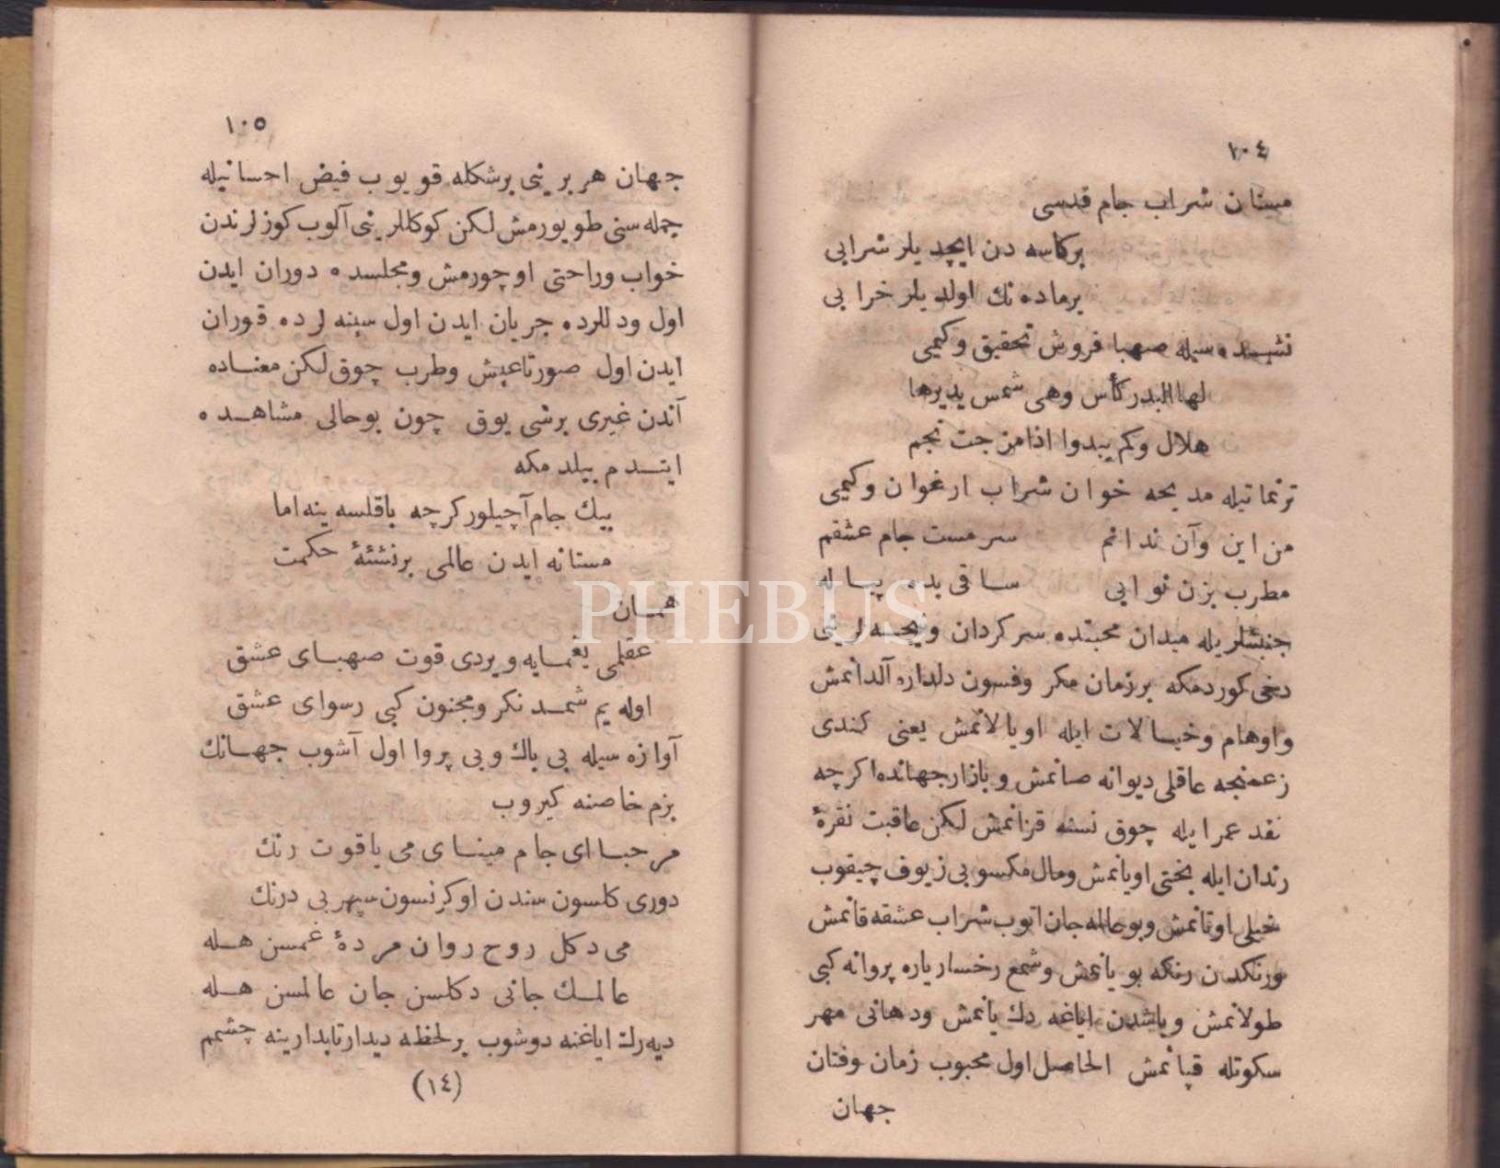 ١٠٤
مستان شراب جام قدسی
برکاسه دن ایچدیلر شرابی
برماده نك اولدیلر خرابی
نشیده سیله صهبا فروش تحقیق وکیمی
لها البدر کأس وهی شمس یدیرها
هلال وکم یبدوا اذا مزجت نجم
ترنماتیله مدیحه خوان شراب ارغوان وکیمی
من این وآن ندانم سرمست جام عشقم
مطرب بزن نوایی ساقی بده پیاله
جنبشلریله میدان محبتده سرکردان ونیجه لرینی
دخی کوردمکه برزمان مکر وفسون دلداره آلدانمش
واوهام وخیالات ایله اویالانمش یعنی کندی
زعمنجه عاقلی دیوانه صانمش وبازار جهانده اکرچه
نقد عمر ایله چوق نسنه قزانمش لکن عاقبت نقرۀ
رندان ایله بختی اویانمش ومال مکسوبی زیوف چیقوب
خیلی اوتانمش وبو حالله جان آتوب شراب عشقه قانمش
ورنکدن رنکه بویانمش وشمع رخسار یاره پروانه کبی
طولانمش وباشدن ایاغه دك یانمش ودهانی مهر
سکوتله قپانمش الحاصل اول محبوب زمان وفتان
جهان
١٠٥
جهان هر برینی برشکله قویوب فیض احسانیله
جمله سنی طویورمش لکن کوکللرینی آلوب کوزلرندن
خواب وراحتی اوچورمش ومجلسده دوران ایدن
اول ودللرده جریان ایدن اول سینه لرده قوران
ایدن اول صورتا عیش وطرب چوق لکن معناده
آندن غیری برشی یوق چون بوحالی مشاهده
ایتدم بیلدمکه
بیك جام آچیلور کرچه باقلسه ینه اما
مستانه ایدن عالمی برنشئۀ حکمت
همان
عقلمی یغمایه ویردی قوت صهبای عشق
اوله یم شمدنکرو مجنون کبی رسوای عشق
آوازه سیله بی باك وبی پروا اول آشوب جهانك
بزم خاصنه کیروب
مرحبا ای جام مینای می یاقوت رنك
دوری کلسون سندن اوکرنسون سپهر بی درنك
می دکل روح روان مردۀ غمسن هله
عالمك جانی دکلسن جان عالمسن هله
دیه رك ایاغنه دوشوب برلحظه دیدار تابدارینه چشمم
(١٤)
PHEBUS